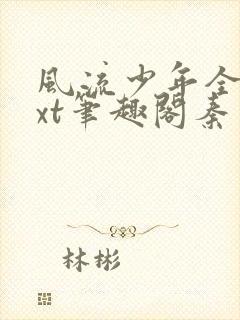 風流少年全
xt筆趣閣秦
林彬